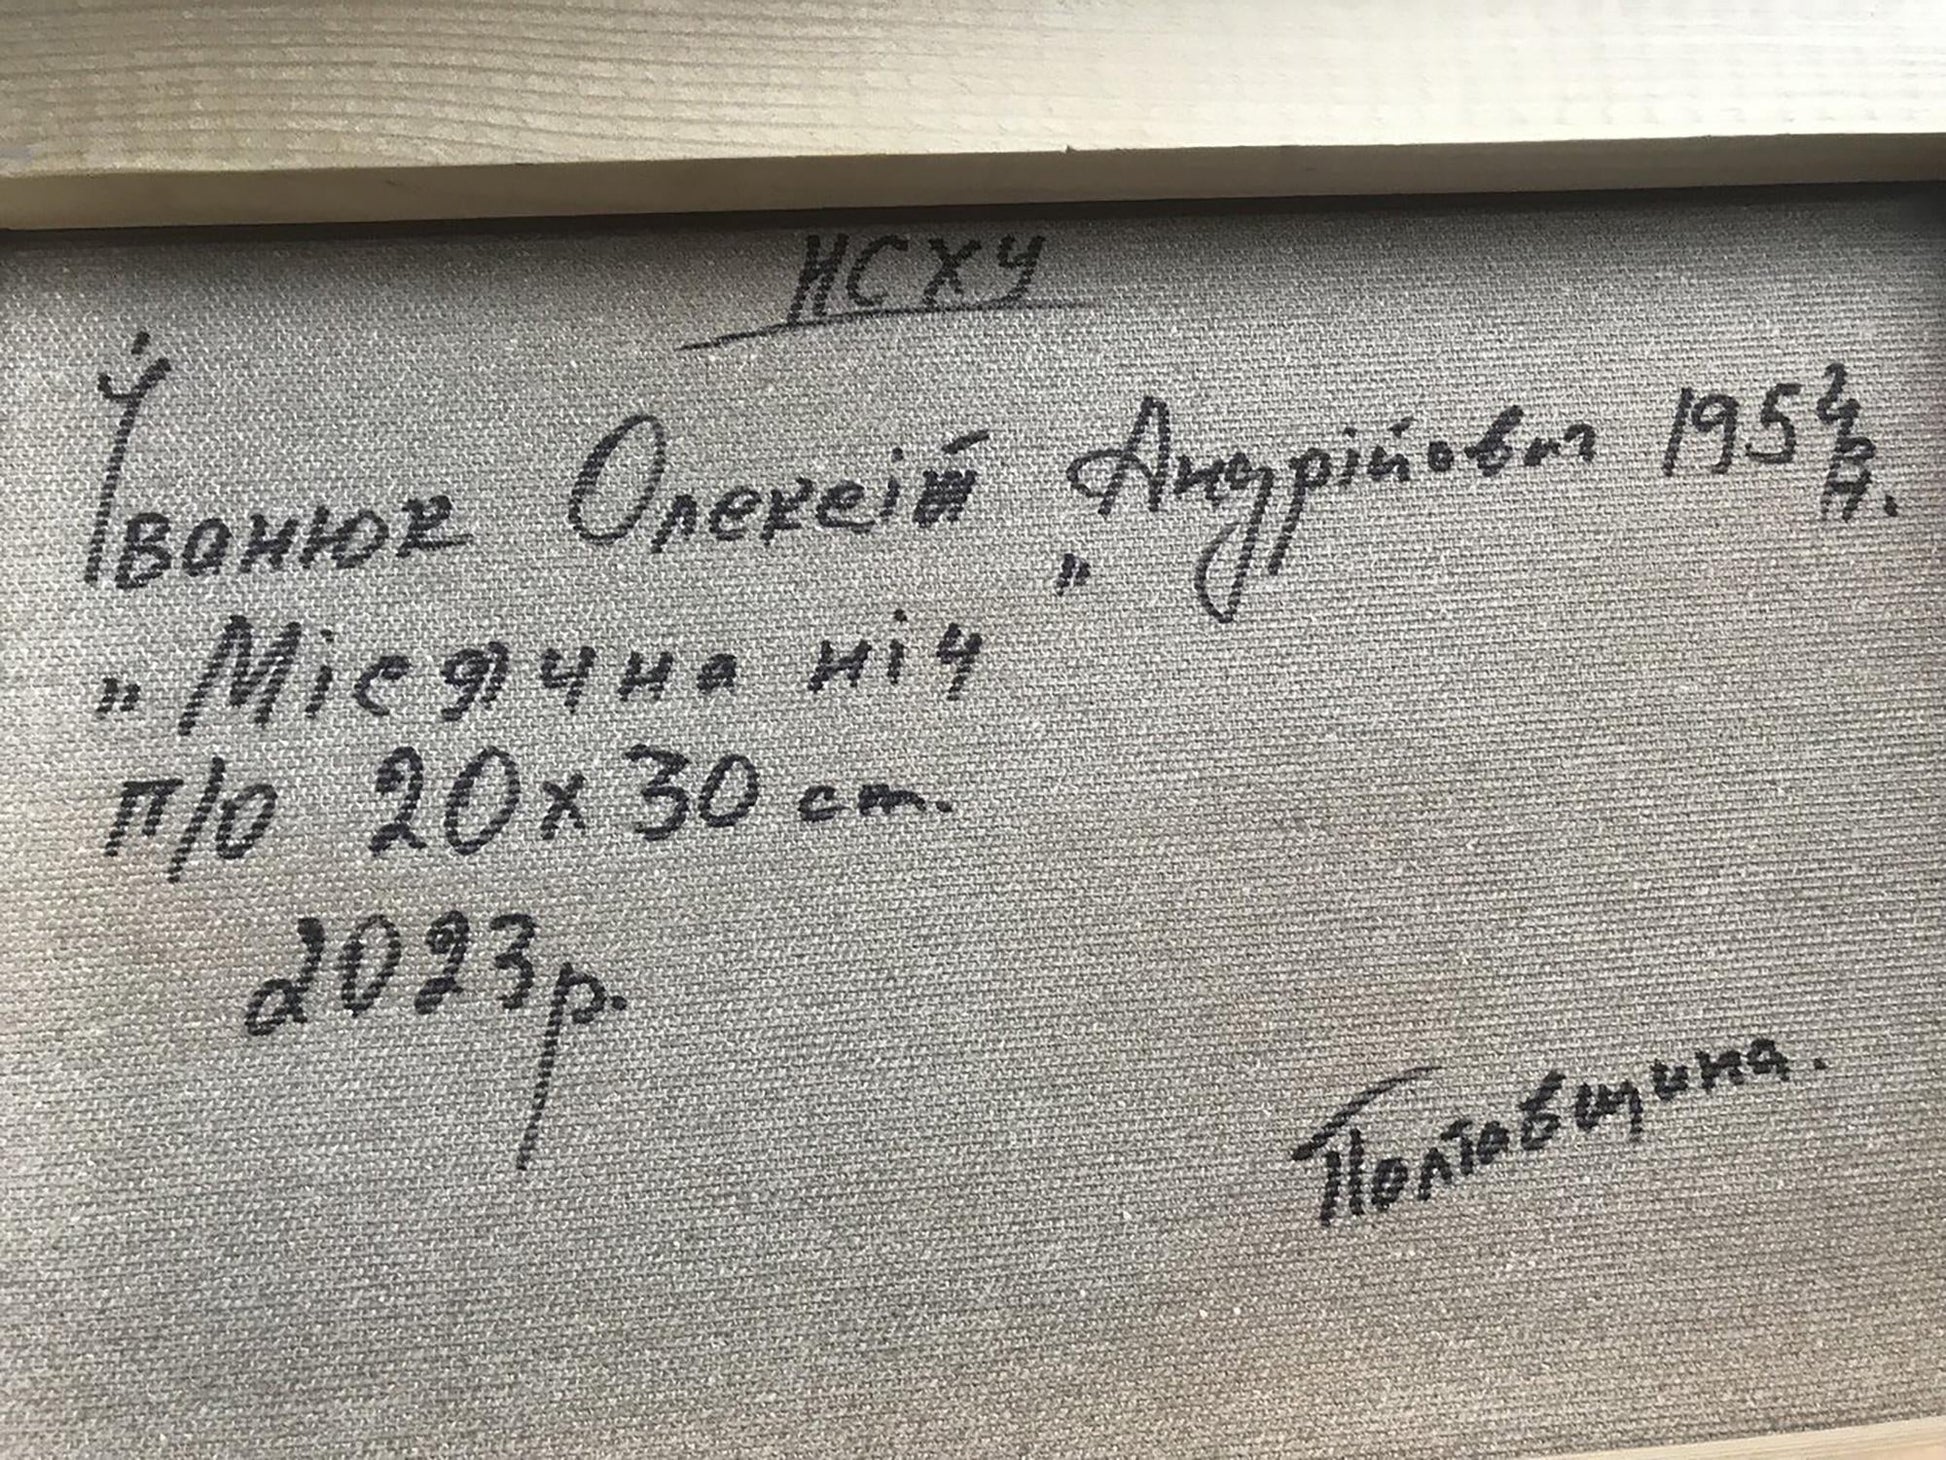 НСХУ
Іванюк Олексій Андрійович 1954 р.
н.
„Місячна ніч"
п/о 20х30 см.
2023р.
Полтавщина.